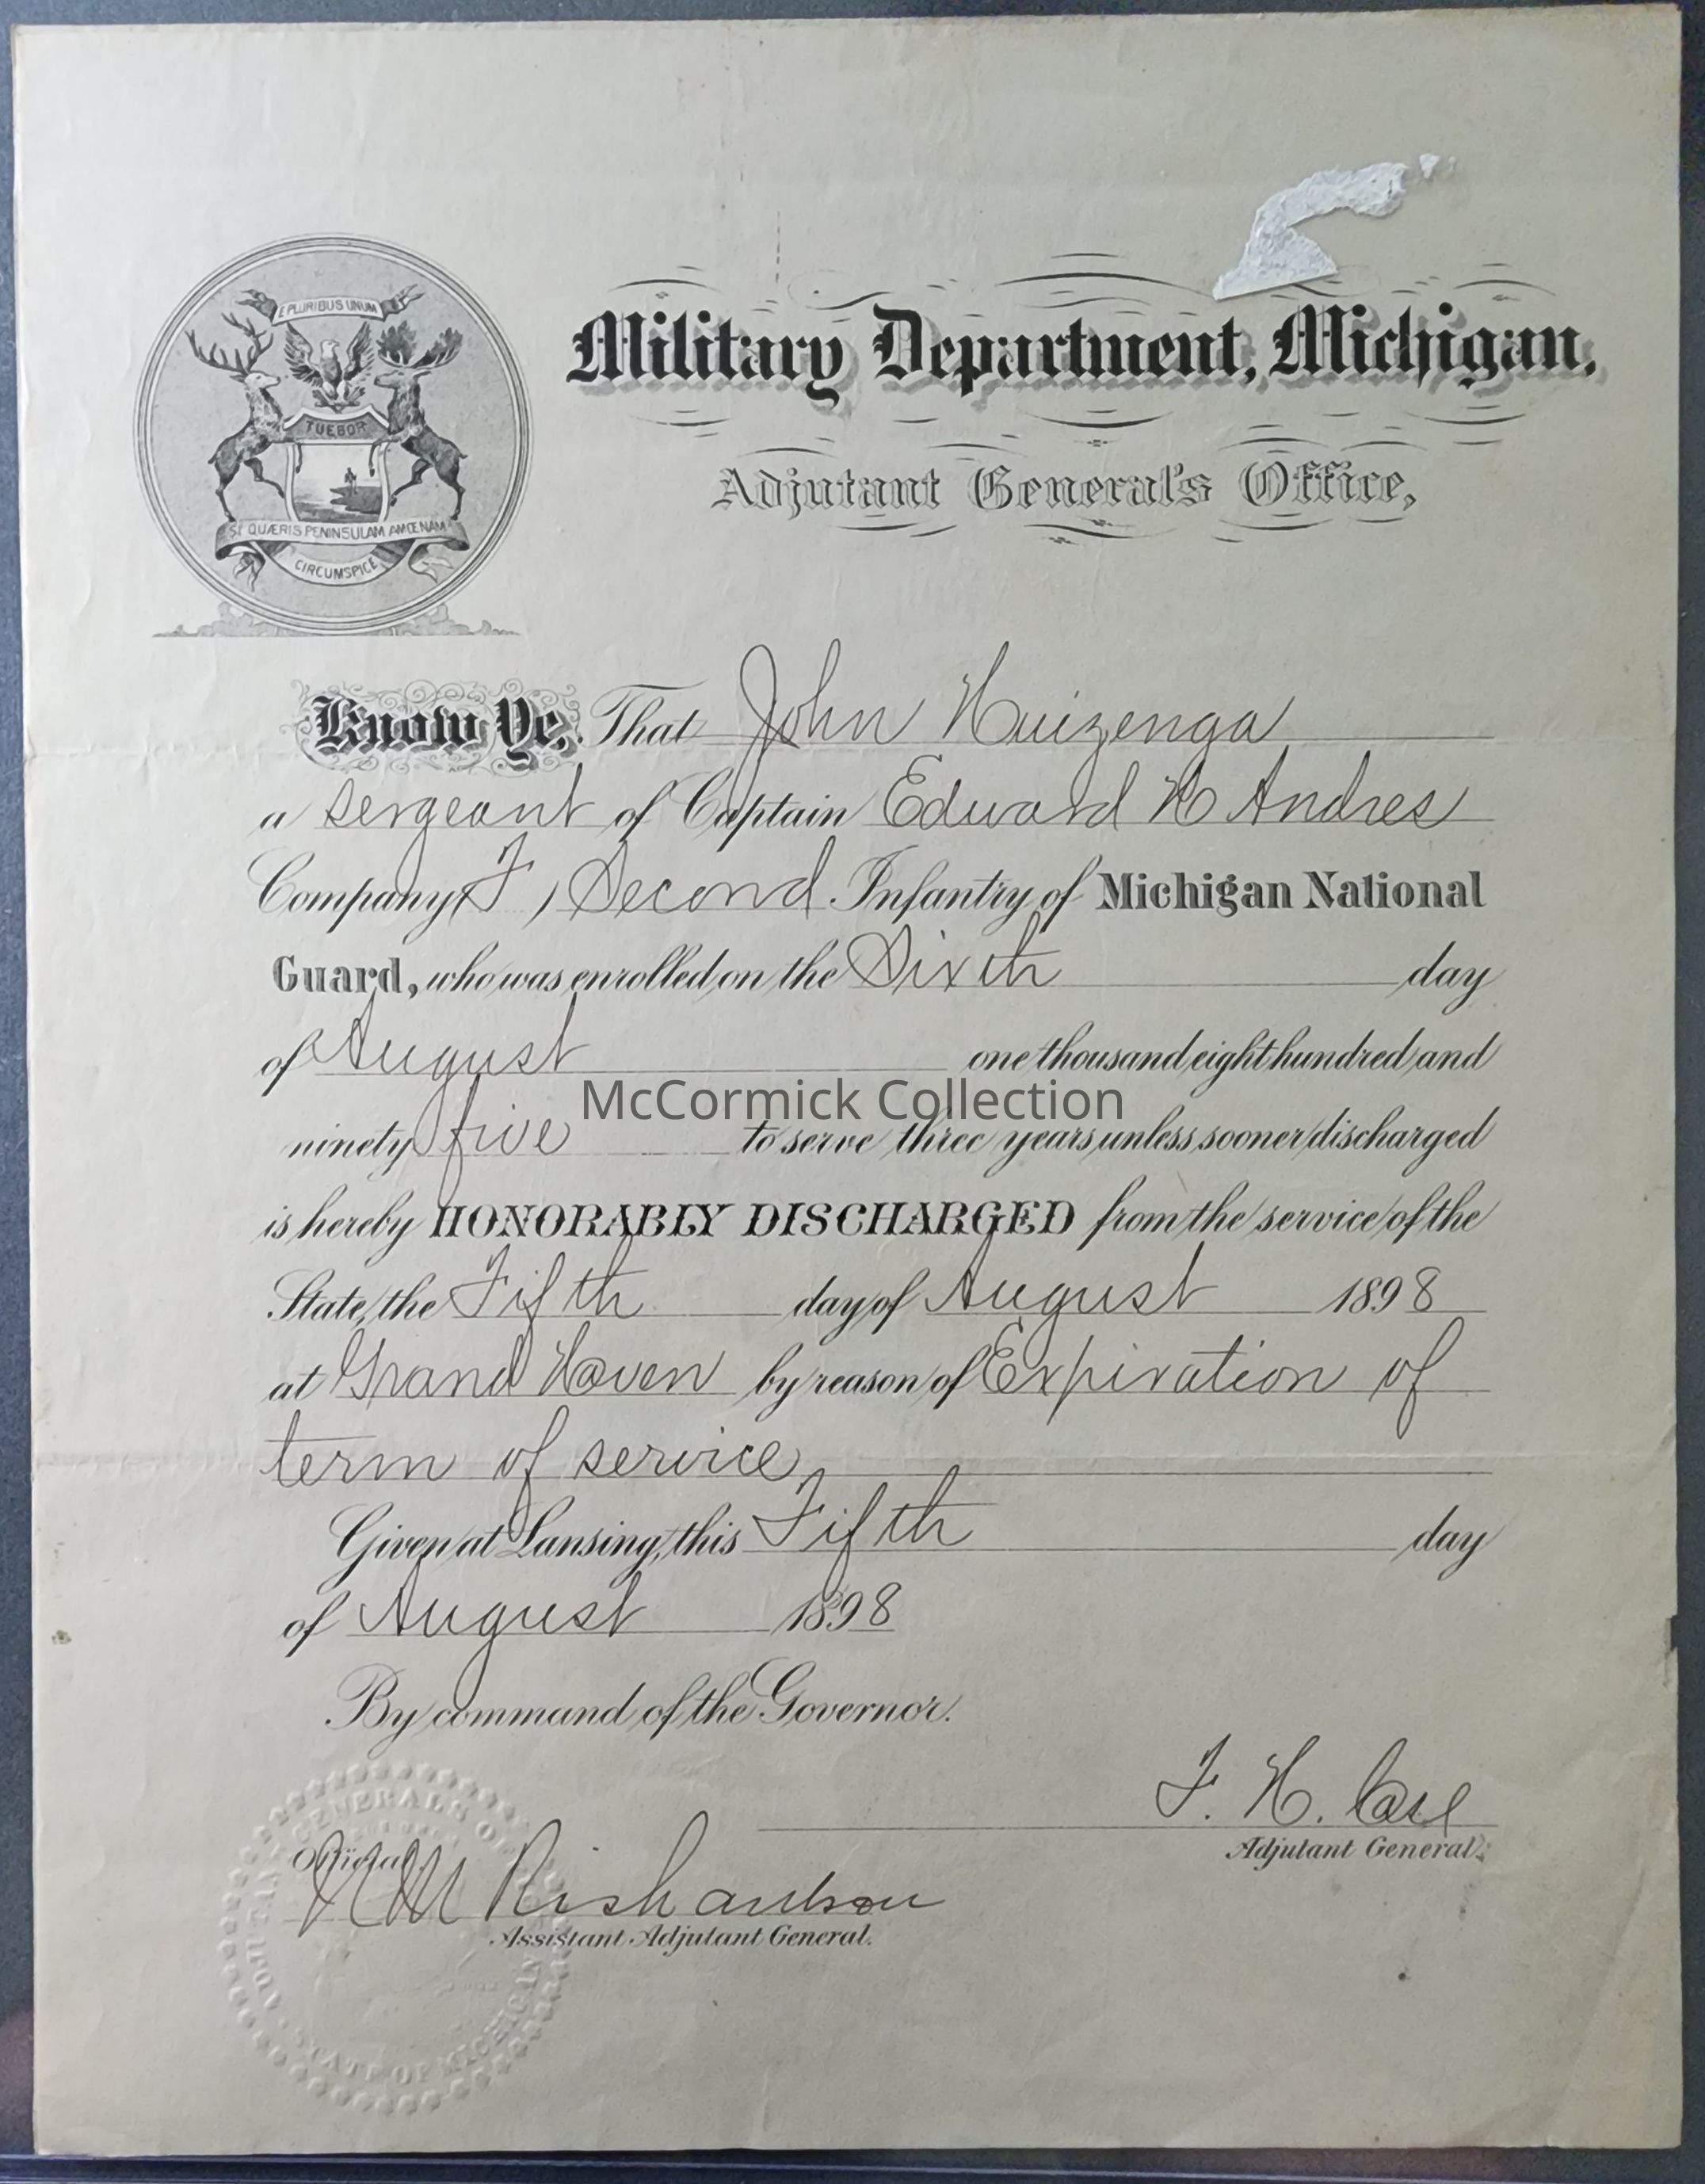 E PLURIBUS UNUM
TUEBOR
SI QUÆRIS PENINSULAM AMŒNAM
CIRCUMSPICE
Military Department, Michigan,
Adjutant General's Office,
Know Ye, That John Huizenga
a sergeant of Captain Edward H Andres
Company F, Second Infantry of Michigan National
Guard, who was enrolled on the Sixth day
of August one thousand eight hundred and
McCormick Collection
ninety five to serve three years, unless sooner discharged
is hereby HONORABLY DISCHARGED from the service of the
State, the Fifth day of August 1898
at Grand Haven by reason of Expiration of
term of service
Given at Lansing, this Fifth day
of August 1898
By command of the Governor.
F. H. Case
Adjutant General.
Official
Richardson
Assistant Adjutant General.
ADJUTANT GENERAL'S OFFICE
STATE OF MICHIGAN